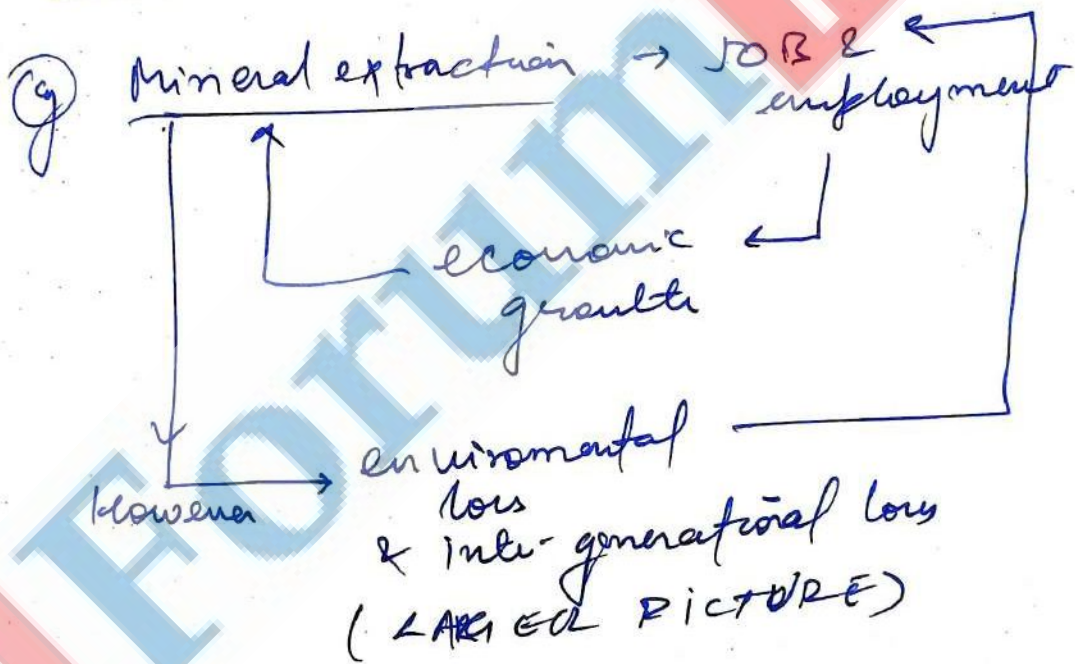 eg Mineral extraction → JOB &
employment
economic
growth
However
environmental
loss
& inter-generational loss
(LARGER PICTURE)
Forum